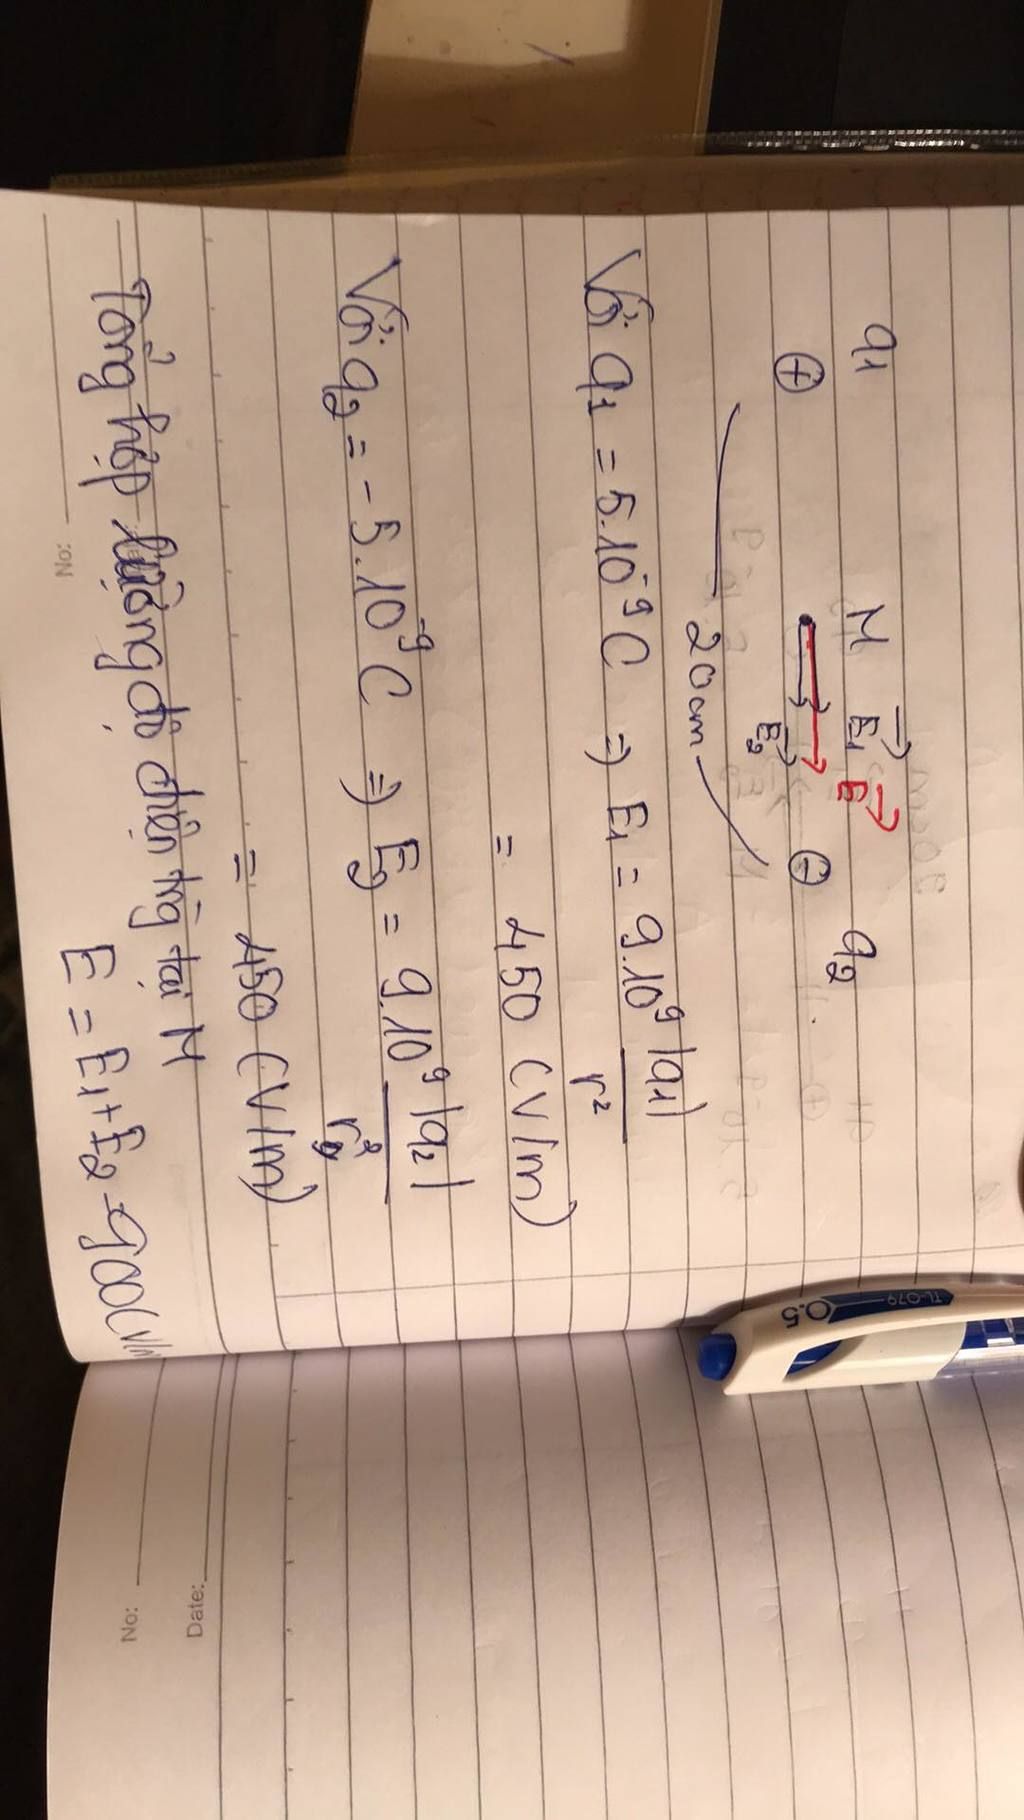 q1 M E1 E q2
+ E2 -
20cm
Với q1 = 5.10^-9 C => E1 = 9.10^9 |q1| / r^2
= 450 (V/m)
Với q2 = -5.10^-9 C => E2 = 9.10^9 |q2| / r^2
= 450 (V/m)
Tổng hợp cường độ điện trg tại M
E = E1 + E2 = 900 (V/m
No:
No:
Date:
TL-079
0.5